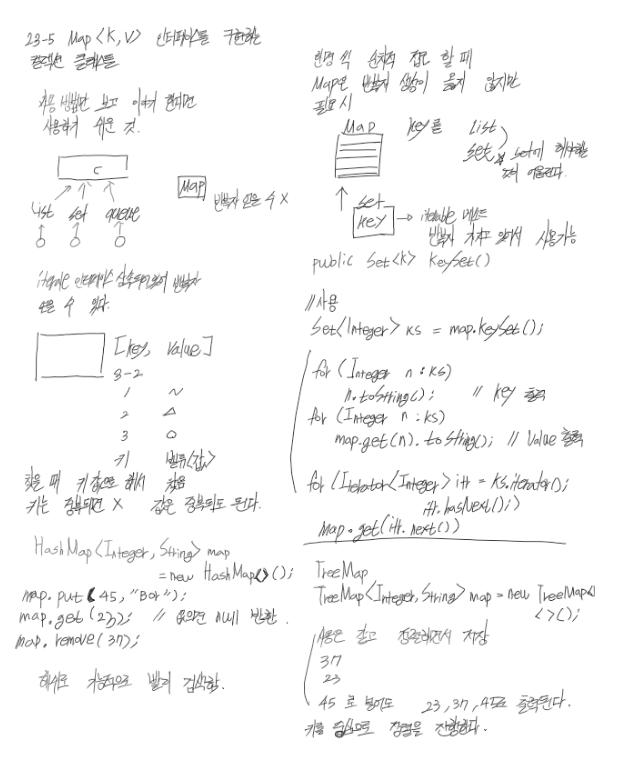 23-5 Map<K,V> 인터페이스를 구현하는
컬렉션 클래스들
사용 방법만 보고 이야기 한다면
사용하기 쉬운 것.
C
List set queue
Map
반복자 얻을 수 X
인터페이스 상속되어있어 반복자
얻을 수 있다.
[key, Value]
3-2
1 ~
2 △
3 ○
키 밸류(값)
찾을 때 키 값으로 해서 찾음
키는 중복되면 X 값은 중복되도 된다.
HashMap<Integer, String> map
= new HashMap<>();
map.put(45, "Bor");
map.get(23); // 없으면 null 반환.
map.remove(37);
해쉬로 빨리 검색함.
한명 씩 순차적 접근 할 때
Map은 반복자 생성이 옳지 않지만
필요시
Map key를 List
set set에 해당하는
것이 어울린다.
set
key → iterable 메소드
반복자 가지고 있어서 사용가능
public Set<K> KeySet()
//사용
Set<Integer> ks = map.KeySet();
for (Integer n : ks)
n.toString(); // key 출력
for (Integer n : ks)
map.get(n).toString(); // Value 출력
for (Iterator<Integer> itr = ks.iterator();
itr.hasNext();)
Map.get(itr.next())
TreeMap
TreeMap<Integer, String> map = new TreeMap
<>();
사용은 같고 정렬해면서 저장
37
23
45 로 넣어도 23, 37, 45로 출력된다.
키를 중심으로 정렬을 진행한다.